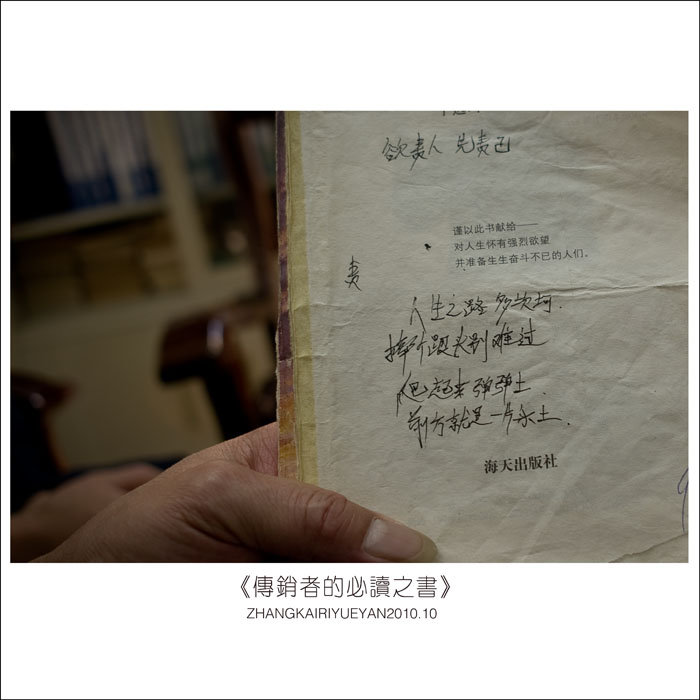 欲责人 先责己
谨以此书献给——
对人生怀有强烈欲望
并准备生生奋斗不已的人们。
责
人生之路多坎坷.
摔个跟头别难过
爬起来弹弹土.
前方就是一片永土.
海天出版社
《傳銷者的必讀之書》
ZHANGKAIRIYUEYAN2010.10